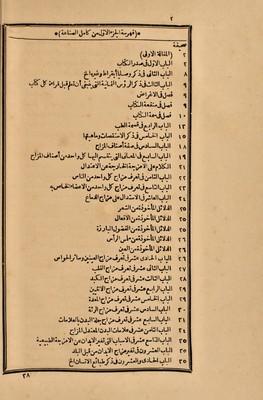 ٢
*(فهرسة الجزء الاول من كامل الصناعة)*
صحيفة
٢ (المقالة الاولى)
٢ الباب الاول فى صدر الكتاب
٦ الباب الثانى فى ذكر وصايا أبقراط وغيره الخ
٩ الباب الثالث فى ذكر الرؤس الثمانية التى ينبغى أن تعلم قبل قراءة كل كتاب
٩ فصل فى الاغراض
٩ فصل فى منفعة الكتاب
١٠ فصل فى سمة الكتاب
١٢ الباب الرابع فى قسمة الطب
١٣ الباب الخامس فى ذكر الاستقصات وماهيتها
١٥ الباب السادس فى صفة أصناف المزاج
١٩ الباب السابع فى المعانى التى ينقسم اليها كل واحد من أصناف المزاج
الكلام على الامزجة الخارجة عن الاعتدال
٢١ الباب الثامن فى تعرف مزاج كل واحد من الناس
الباب التاسع فى تعرف مزاج كل واحد من الاعضاء الخاص به
الباب العاشر فى الاستدلال على مزاج الدماغ
٢٥ الدلائل المأخوذة من الشعر
٢٥ الدلائل المأخوذة من الافعال
٢٥ الدلائل المأخوذة من الفضول البارزة
الدلائل المأخوذة من ملمس الرأس
٢٦ الدلائل المأخوذة من العين
٢٦ الباب الحادى عشر فى تعرف مزاج العينين وسائر الحواس
الباب الثانى عشر فى تعرف مزاج القلب
الباب الثالث عشر فى تعرف مزاج الكبد
الباب الرابع عشر فى تعرف مزاج الانثيين
الباب الخامس عشر فى تعرف مزاج المعدة
٣٠ الباب السادس عشر فى تعرف مزاج الرئة
الباب السابع عشر فى تعرف مزاج جملة البدن بالعلامات
الباب الثامن عشر فى علامات البدن المعتدل المزاج
الباب التاسع عشر فى الاسباب التى تغير الابدان عن الامزجة الطبيعية
٣٥ الباب العشرون فى تغير مزاج الابدان من قبل البلد
٣٥ الباب الحادى والعشرون فى ذكر طبائع الانسان الخ
٣٨